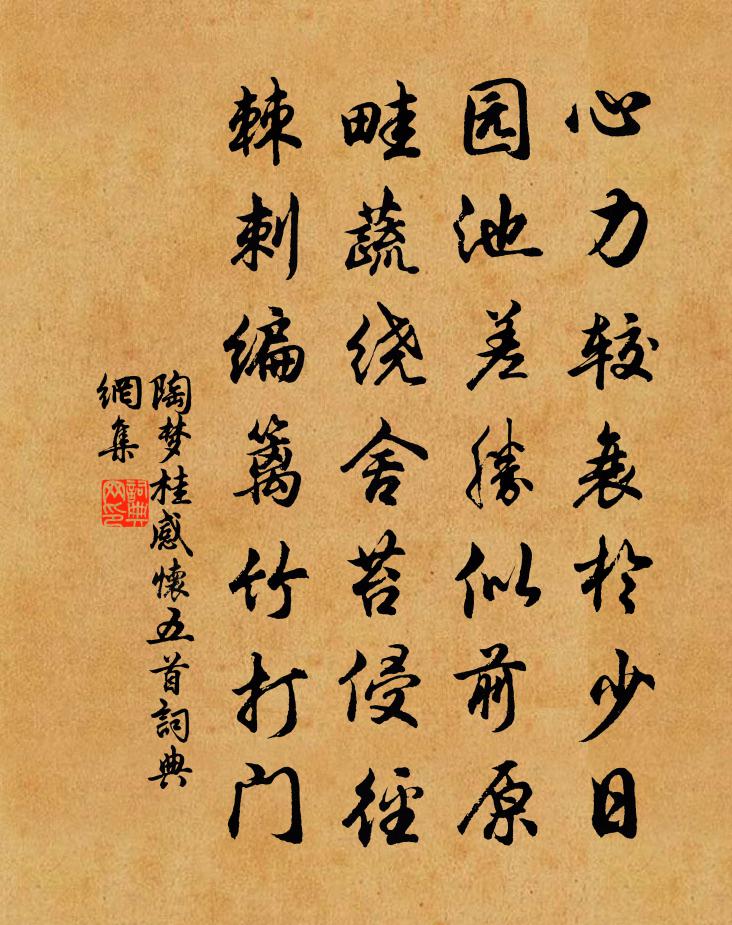 心力较衰于少日
园池差勝似前原
畦蔬绕舍苔侵径
棘刺编篱竹打门
陶梦桂感懷五首詞典
網集
詞典
网印